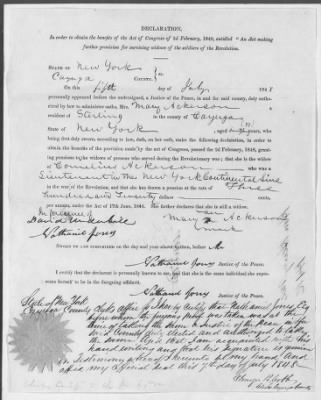 DECLARATION,
In order to obtain the benefits of the Act of Congress of 2d February, 1848, entitled "An Act making
further provision for surviving widows of the soldiers of the Revolution.
STATE OF New York
Cayuga COUNTY, ss
On this fifth day of July 184
personally appeared before the undersigned, a Justice of the Peace, in and for said county, duly autho-
rized by law to administer oaths, Mrs. Mary Ackerson a
resident of Sterling in the county of Cayuga
State of New York aged years, who
being first duly sworn, according to law, doth, on her oath, make the following declaration, in order to
obtain the benefits of the provision made by the act of Congress, passed the 2d February, 1848, grant-
ing pensions to the widows of persons who served during the Revolutionary war; that she is the widow
of Cornelius Ackerson who was a
Lieutenant in the New York Continental Line
in the war of the Revolution, and that she has drawn a pension at the rate of Three
hundred and Twenty dollars
per annum, under the Act of 17th June, 1844. she further declares that she is still a widow.
In presence of
David Mary Ackerson
Nathaniel Jones mark
SWORN TO AND SUBSCRIBED on the day and year above written, before Me
Nathaniel Jones Justice of the Peace.
I certify that the declarant is personally known to me, and that she is the same individual she repre-
sents herself to be in the foregoing affidavit.
Nathaniel Jones Justice of the Peace.
State of New York
Cayuga County Clerks office I hereby certify that Nathaniel Jones Esq
before whom the foregoing proof was taken was at the
time of taking the same a Justice of the Peace in and for
said County duly elected and authorized to take
the same and that I am acquainted with his
hand writing and that his signature is genuine
In Testimony whereof I hereunto set my hand and
affix my official seal this 7th day of July 1848
Clerk Cayuga County